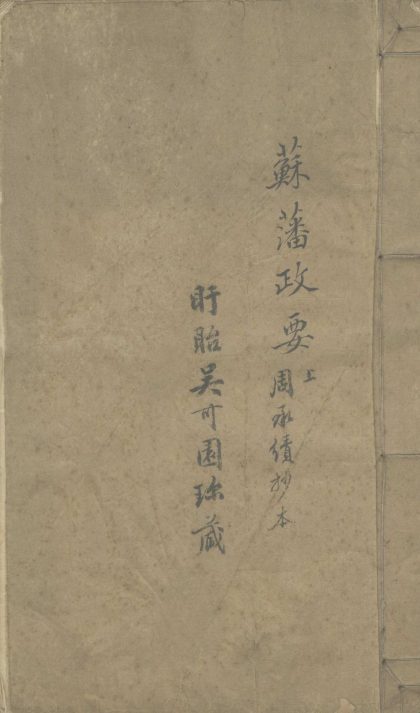 蘇藩政要上周承績抄本
盱眙吴可園珍藏